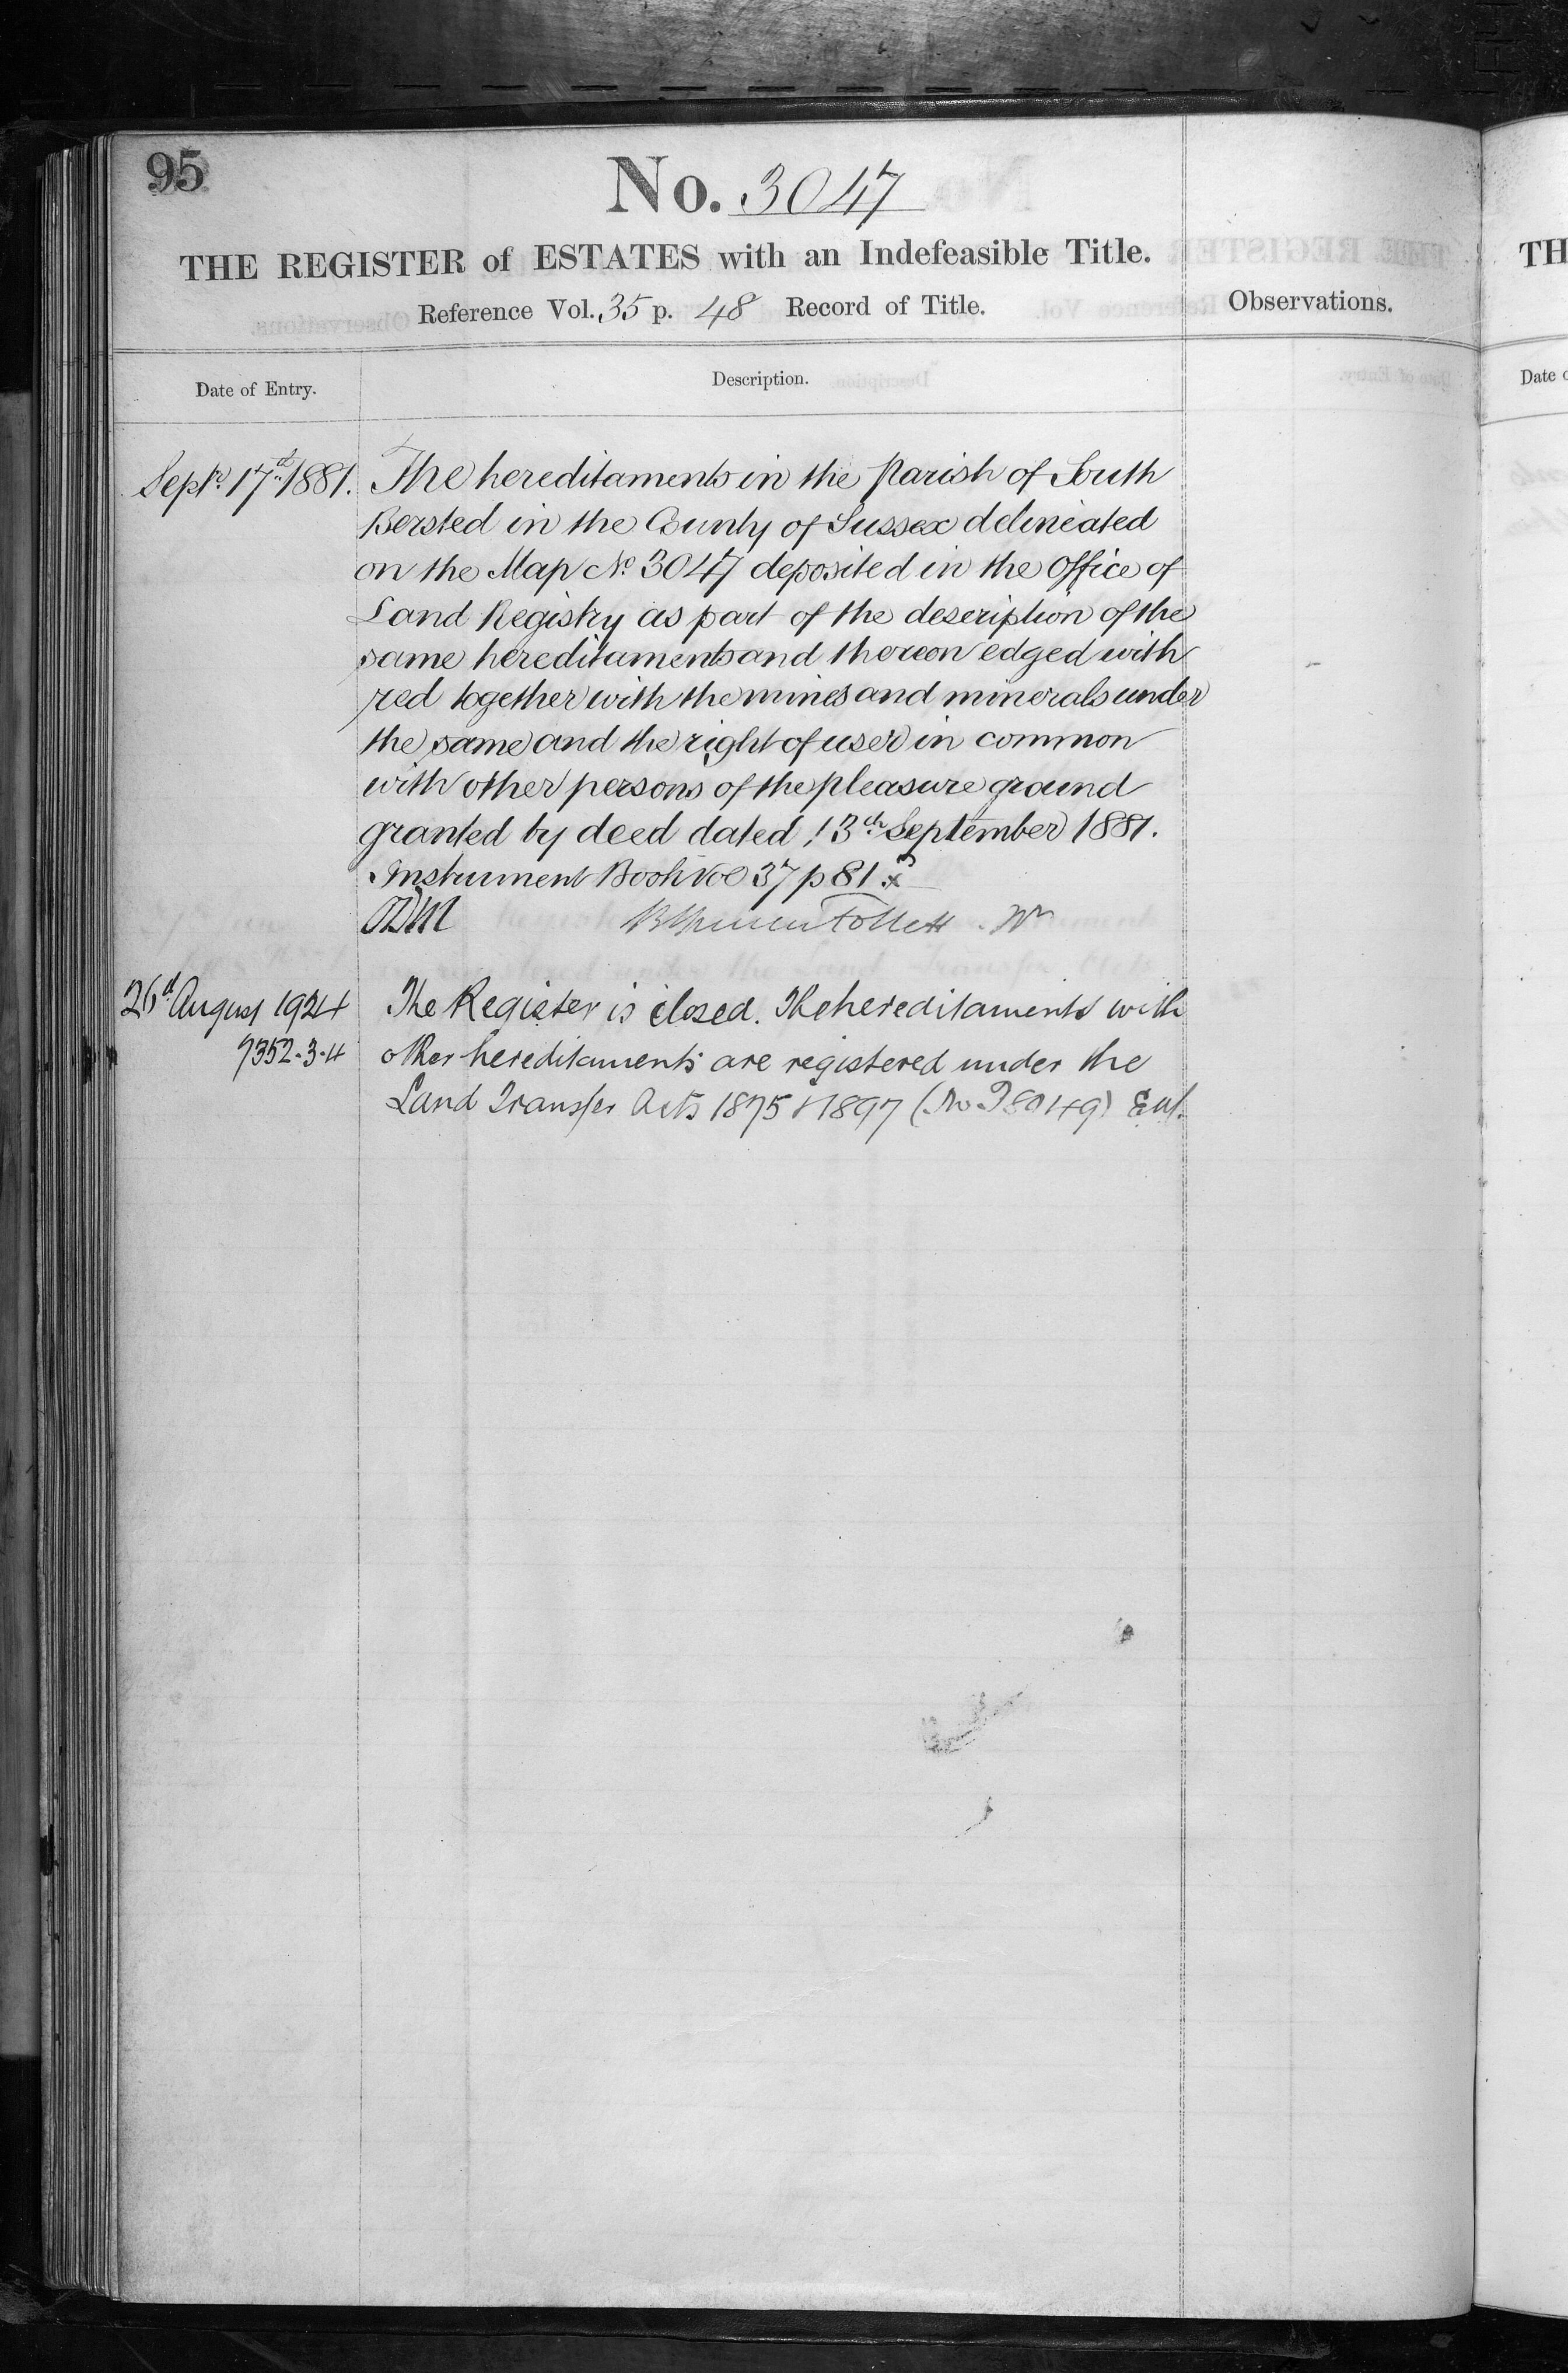 95
No. 3047
THE REGISTER of ESTATES with an Indefeasible Title.
Reference Vol. 35 p. 48 Record of Title.
Observations.
Date of Entry.
Description.
Septr. 17d. 1881.
The hereditaments in the Parish of South
Bersted in the County of Sussex delineated
on the Map No. 3047 deposited in the Office of
Land Registry as part of the description of the
same hereditaments and thereon edged with
red together with the mines and minerals under
the same and the right of user in common
with other persons of the pleasure ground
granted by deed dated 13th September 1881.
Instrument Book Vol 37 p 81
Follett
26d August 1924
7352-3-4
The Register is closed. The hereditaments with
other hereditaments are registered under the
Land Transfer Acts 1875 & 1897 (No
TH
Date